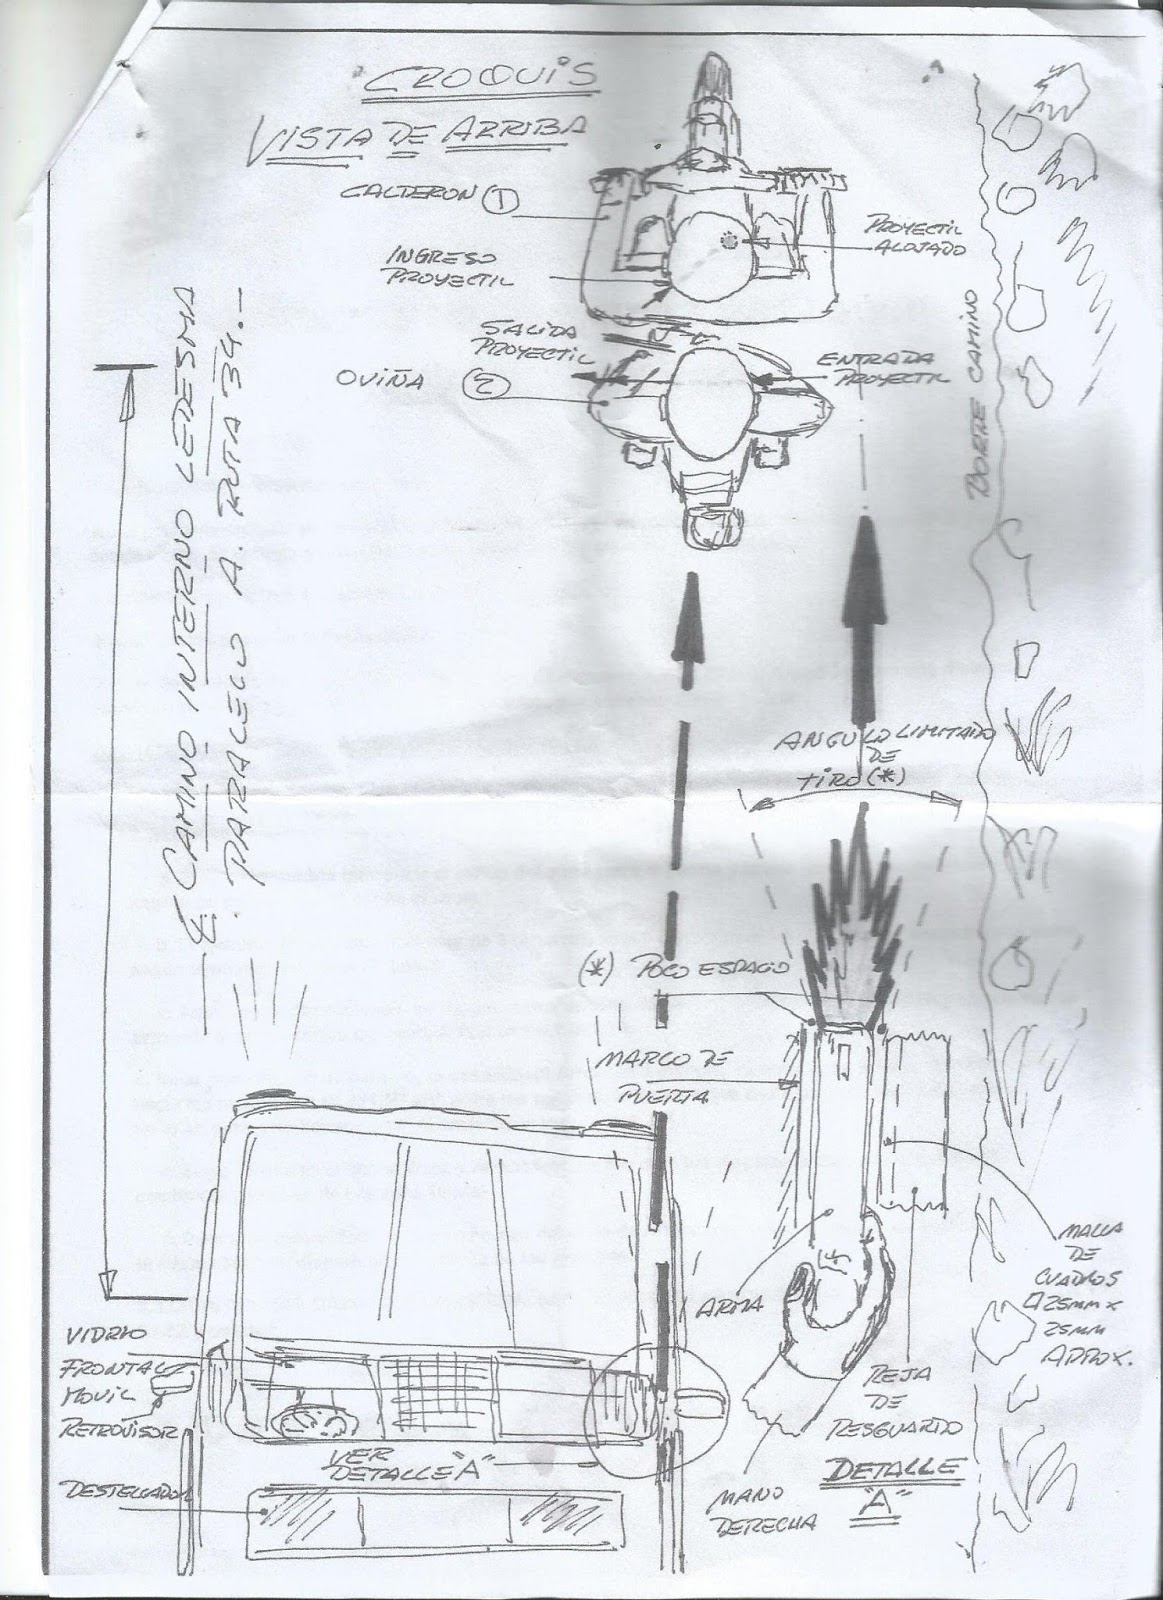 CROQUIS
VISTA DE ARRIBA
CALDERON ①
INGRESO
PROYECTIL
PROYECTIL
ALOJADO
SALIDA
PROYECTIL
OVIÑA ②
ENTRADA
PROYECTIL
BORDE CAMINO
CAMINO INTERNO LEDESMA
PARALELO A. RUTA 34.-
ANGULO LIMITADO
DE
TIRO (*)
(*) POCO ESPACIO
MARCO DE
PUERTA
ARMA
MALLA
DE
CUADROS
25mm x
25mm
APROX.
VIDRIO
FRONTAL
MOVIL
RETROVISOR
REJA
DE
RESGUARDO
VER
DETALLE "A"
DESTELLADOR
MANO
DERECHA
DETALLE
"A"